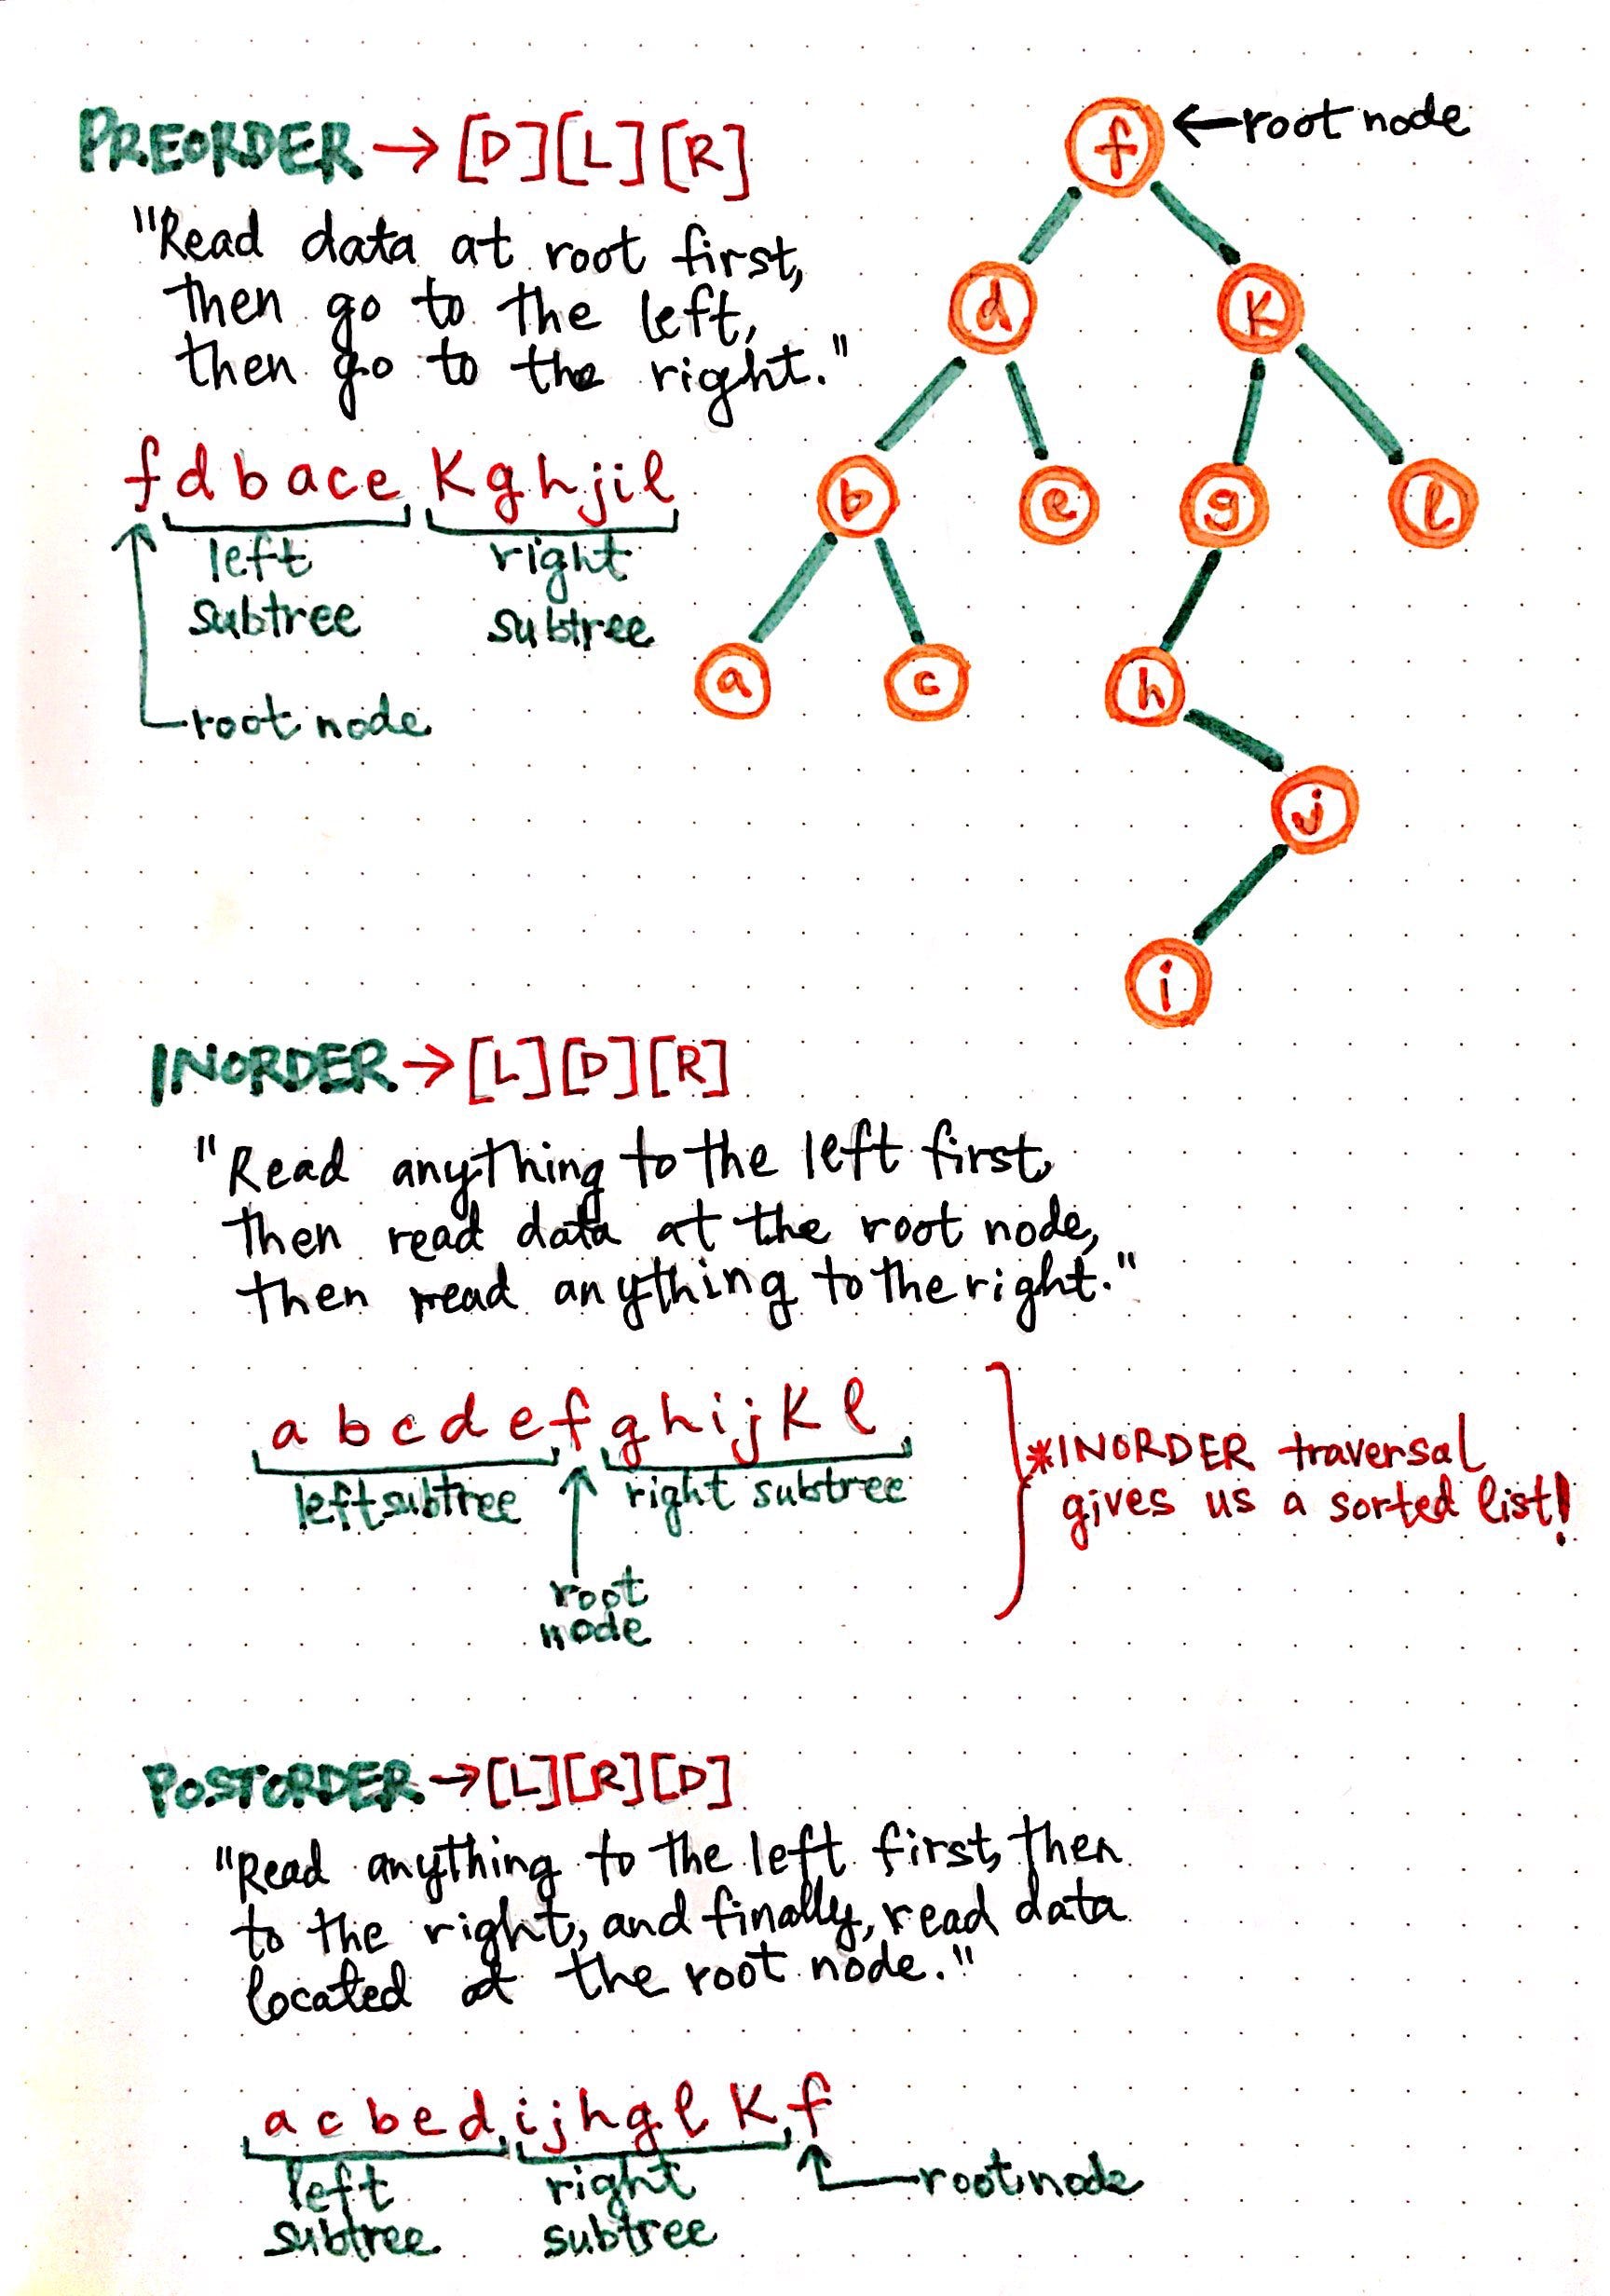 PREORDER → [D][L][R]
"Read data at root first,
then go to the left,
then go to the right."
f d b a c e k g h j i l
left subtree
right subtree
root node
← root node
f
d
k
b
e
g
l
a
c
h
j
i
INORDER → [L][D][R]
"Read anything to the left first,
then read data at the root node,
then read anything to the right."
a b c d e f g h i j k l
left subtree
right subtree
root
node
*INORDER traversal
gives us a sorted list!
POSTORDER → [L][R][D]
"Read anything to the left first, then
to the right, and finally, read data
located at the root node."
a c b e d i j h g l k f
left subtree
right subtree
root node